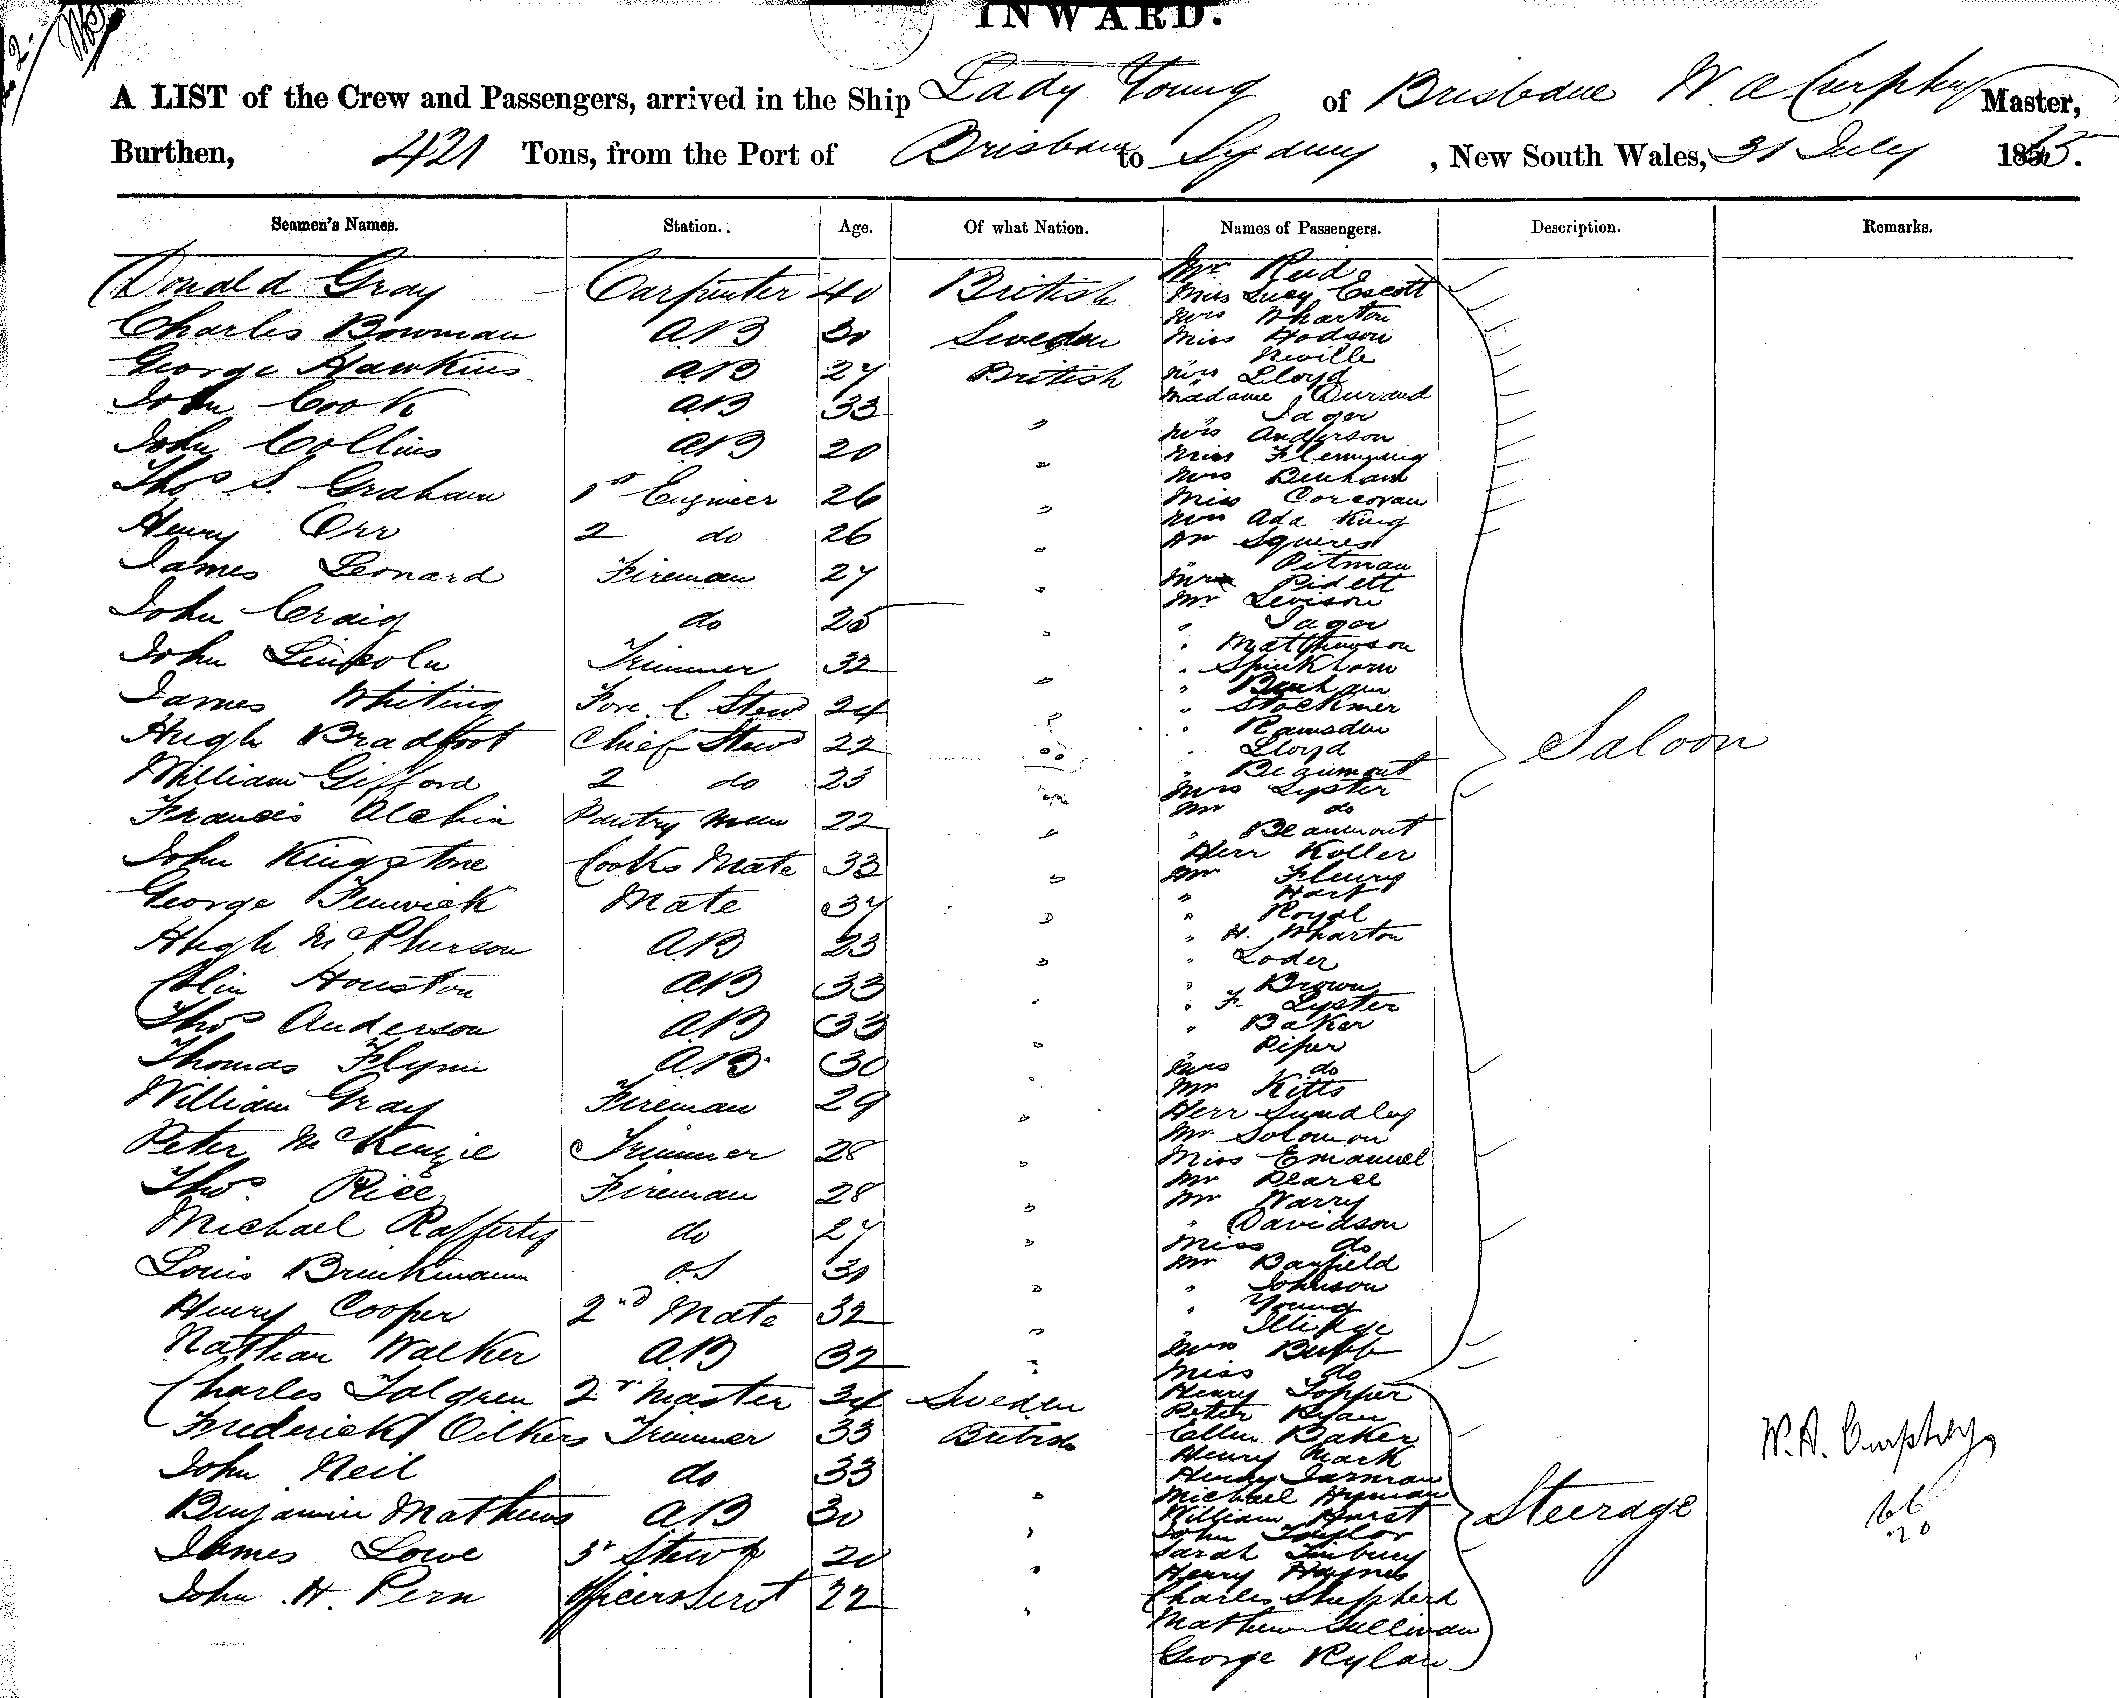 INWARD.
A LIST of the Crew and Passengers, arrived in the Ship Lady Young of Brisbane W. A Curphey Master,
Burthen, 421 Tons, from the Port of Brisbane to Sydney, New South Wales, 31 July 1865.
Seamen's Names. Station. Age. Of what Nation. Names of Passengers. Description. Remarks.
Donald Gray Carpenter 40 British
Charles Bowman AB 30 Sweden
George Hawkins AB 27 British
John Cook AB 33 "
John Collins AB 20 "
Thos S. Graham 1st Engineer 26 "
Henry Orr 2 do 26 "
James Leonard Fireman 27 "
John Craig do 25 "
John Lincoln Trimmer 32 "
James Whiting Fore C Stewd 24 "
Hugh Bradfoot Chief Stewd 22 "
William Gifford 2 do 23 "
Francis Alchin Pantry man 22 "
John Kingstone Cooks Mate 33 "
George Fenwick Mate 37 "
Hugh McPherson AB 23 "
Colin Houston AB 33 "
Thos Anderson AB 33 "
Thomas Flynn AB 30 "
William Gray Fireman 29 "
Peter McKenzie Trimmer 28 "
Thos. Rice Fireman 28 "
Michael Rafferty do 27 "
Louis Brinkmann OS 31 "
Henry Cooper 2nd Mate 32 "
Nathan Walker AB 32 "
Charles Talgren 2r Master 34 Sweden
Frederick Oelkers Trimmer 33 British
John Neil do 33
Benjamin Mathews AB 30 "
James Lowe 3r Stewd 20 "
John H. Pern Officers Servt 22 "
Mr Reid
Miss Lucy Escott
Mrs Wharton
Miss Hodson
" Neville
Mrs Lloyd
Madame Durand
" Jager
Mrs Anderson
Miss Flemming
Mrs Benham
Miss Corcoran
Miss Ada King
Mr Squires
" Pitman
Mrs Pidett
Mr Levison
" Jager
" Matthewson
" Spinkhorn
" Benham
" Stockmer
" Ramsden
" Lloyd
" Beaumont
Mrs Lyster
Mr do
" Beaumont
Herr Koller
Mr Fleury
" Hart
" Royal
" H. Wharton
" Loder
" Brown
" F. Lyster
" Baker
" Piper
Mrs do
Mr Kitts
Herr Sundley
Mr Solomon
Miss Emanuel
Mr Pearce
Mr Warry
" Davidson
Miss do
Mr Banfield
" Johnson
" Young
Mrs Bubb
Miss do
Saloon
Henry Topper
Peter Ryan
Ellen Baker
Henry Mark
Henry Jarman
Michael Hyman
William Hurst
John Taylor
Sarah Finbury
Henry Haynes
Charles Shepherd
Mathew Sullivan
George Rylan
Steerage
W. A. Curphey